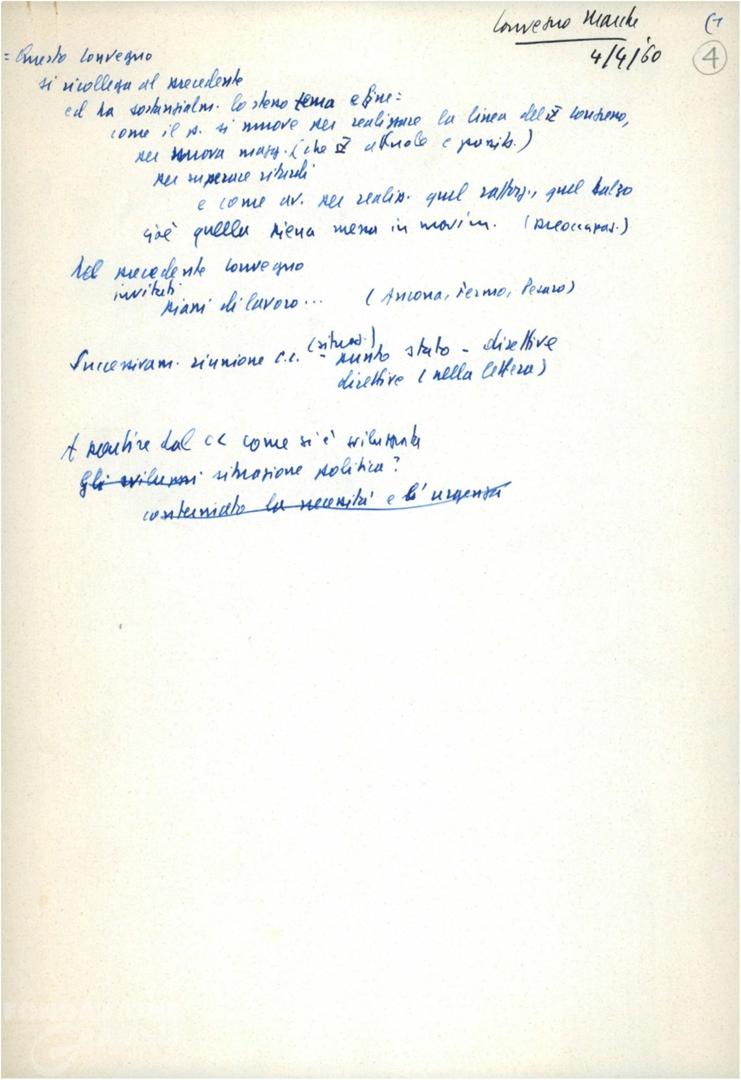 Convegno Marche
4/4/'60
4
= Questo convegno
si ricollega al precedente
ed ha sostanzialm. lo stesso tema e fine:
come il p. si muove per realizzare la linea del congresso,
per nuova magg. (che è attuale e possib.)
per superare ritardi
e come av. per realizz. quel rafforz., quel balzo
cioè quella piena messa in movim. (preoccupaz.)
Nel precedente convegno
invitati
piani di lavoro... (Ancona, Fermo, Pesaro)
Successivam. riunione c.c. (situaz.) - punto stato - direttive
direttive (nella lettera)
A partire dal CC come si è sviluppata
Gli sviluppi situazione politica?
la necessità e l'urgenza
FONDAZIONE